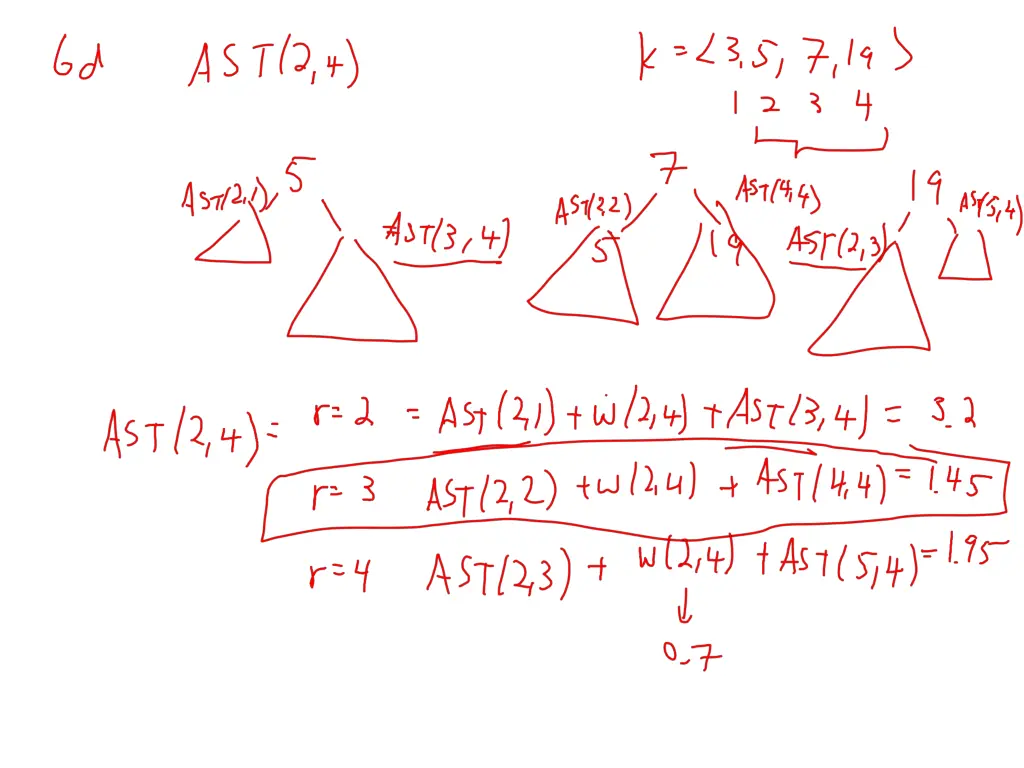 6d AST(2,4) k = <3,5, 7,19>
1 2 3 4
5 7 19
AST(2,1) AST(3,4) AST(2,2) AST(4,4) AST(2,3) AST(5,4)
5 19
AST(2,4) = r=2 = AST(2,1) + w(2,4) + AST(3,4) = 3.2
r=3 AST(2,2) + w(2,4) + AST(4,4) = 1.45
r=4 AST(2,3) + w(2,4) + AST(5,4) = 1.95
↓
0.7